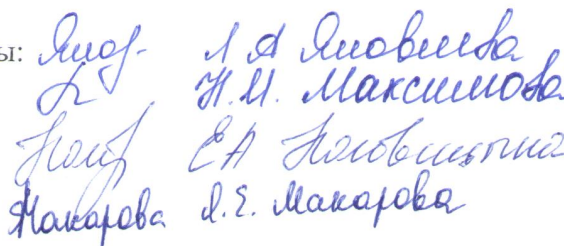 ы: Яков- Л А Яковлева
Н.М. Максимова
ЕА
Макарова Л.Е. Макарова